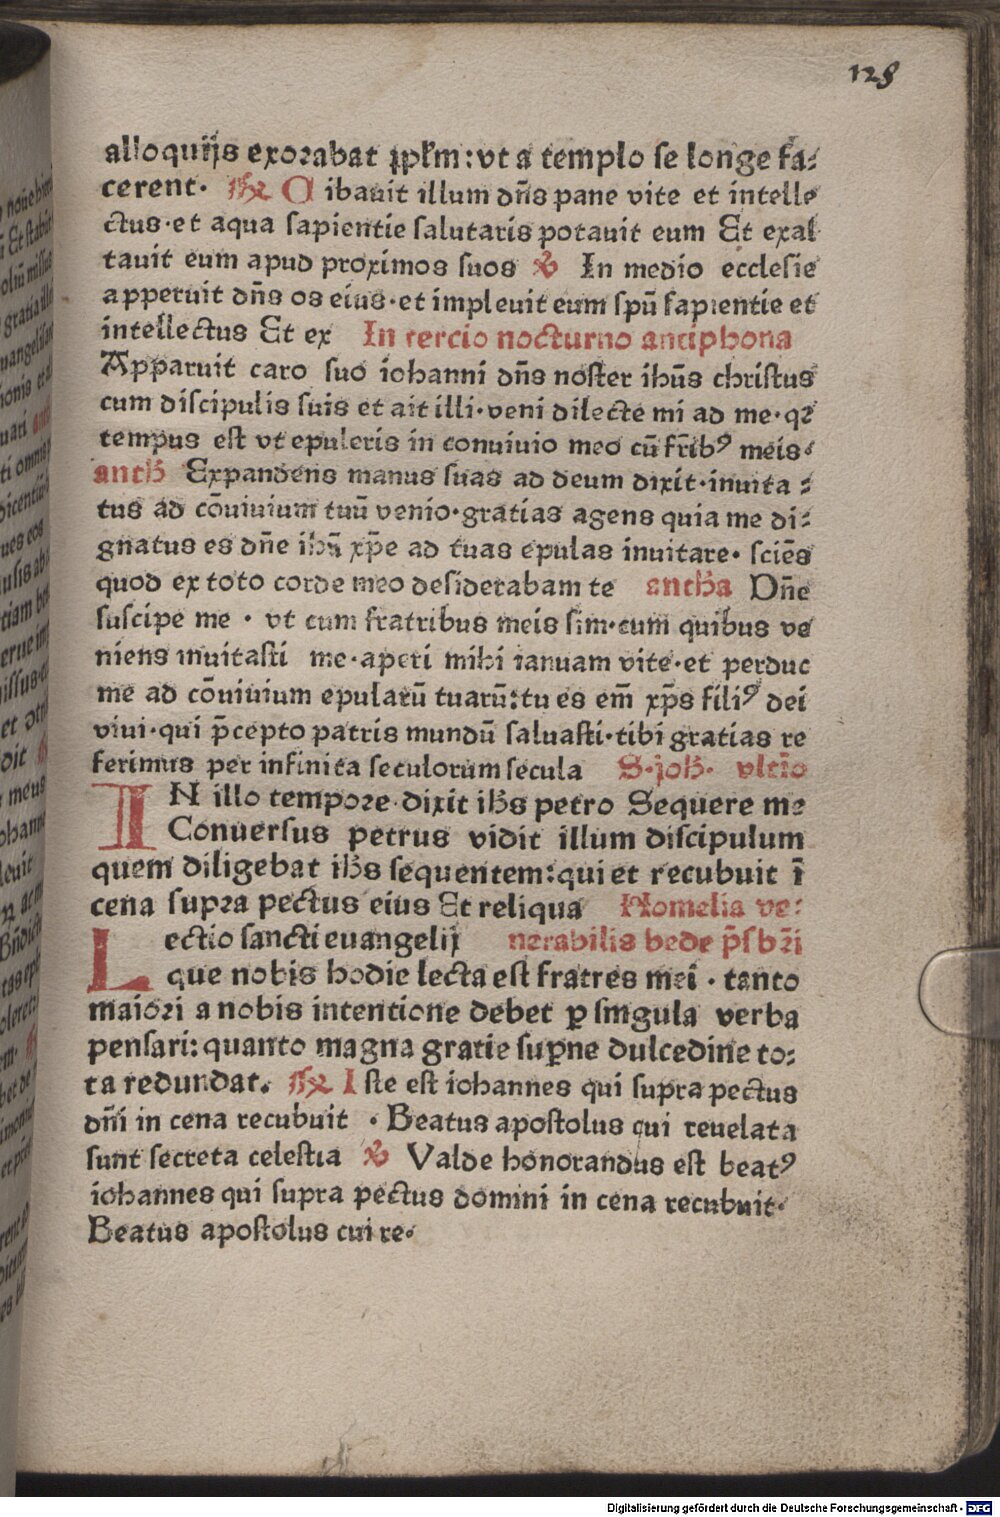 128
alloquijs exorabat ꝓpłm: vt a templo se longe fa⸗
cerent. R̃ Cibauit illum dñs pane vite et intelle
ctus·et aqua sapientie salutaris potauit eum Et exal
tauit eum apud proximos suos ℣ In medio ecclesie
apperuit dñs os eius·et impleuit eum spũ sapientie et
intellectus Et ex In tercio nocturno antiphona
Apparuit caro suo iohanni dñs noster ihũs christus
cum discipulis suis et ait illi·veni dilecte mi ad me·qꝛ
tempus est vt epuleris in conuiuio meo cũ fr̃ibꝰ meis·
antħ Expandens manus suas ad deum dixit·inuita⸗
tus ad cõuiuium tuũ venio·gratias agens quia me di⸗
gnatus es dñe ihũ xp̃e ad tuas epulas inuitare· sciẽs
quod ex toto corde meo desiderabam te antħa Dñe
suscipe me · vt cum fratribus meis sim·cum quibus ve
niens inuitasti me·aperi mihi ianuam vite·et perduc
me ad cõuiuium epularũ tuarũ:tu es em̃ xp̃s filiꝰ dei
viui·qui p̃cepto patris mundũ saluasti·tibi gratias re
ferimus per infinita seculorum secula S·joħ· vltĩo
IN illo tempore dixit iħs petro Sequere me
Conuersus petrus vidit illum discipulum
quem diligebat iħs sequentem:qui et recubuit ĩ
cena supra pectus eius Et reliqua Homelia ve⸗
Lectio sancti euangelij nerabilis bede p̃sbr̃i
que nobis hodie lecta est fratres mei · tanto
maiori a nobis intentione debet ꝑ singula verba
pensari: quanto magna gratie suꝑne dulcedine to⸗
ta redundat. R̃ Iste est iohannes qui supra pectus
dñi in cena recubuit · Beatus apostolus cui reuelata
sunt secreta celestia ℣ Valde honorandus est beatꝰ
iohannes qui supra pectus domini in cena recubuit·
Beatus apostolus cui re·
Digitalisierung gefördert durch die Deutsche Forschungsgemeinschaft - DFG